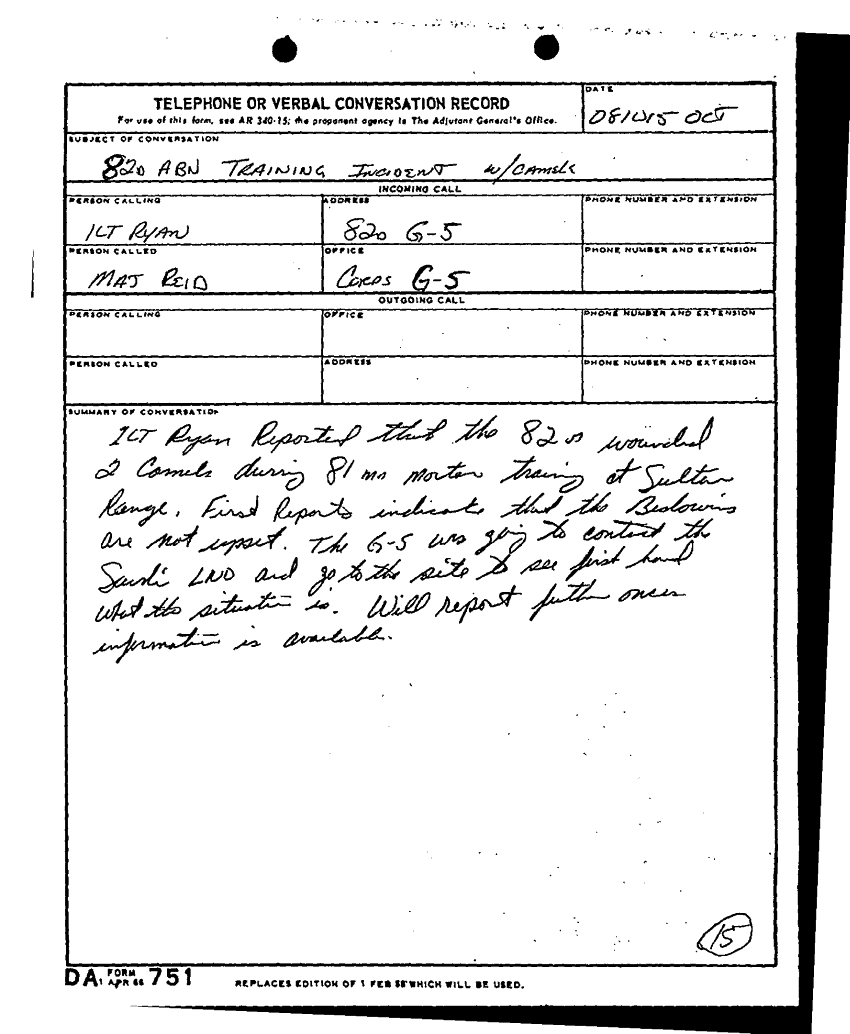 TELEPHONE OR VERBAL CONVERSATION RECORD
For use of this form, see AR 340-15; the proponent agency is The Adjutant General's Office.
DATE
OCT
SUBJECT OF CONVERSATION
82D ABN TRAINING INCIDENT W/CAMELS
INCOMING CALL
PERSON CALLING
ADDRESS
PHONE NUMBER AND EXTENSION
1LT RYAN
82D G-5
PERSON CALLED
OFFICE
PHONE NUMBER AND EXTENSION
MAJ REID
CORPS G-5
OUTGOING CALL
PERSON CALLING
OFFICE
PHONE NUMBER AND EXTENSION
PERSON CALLED
ADDRESS
PHONE NUMBER AND EXTENSION
SUMMARY OF CONVERSATION
1LT Ryan Reported that the 82D wounded
2 Camels during 81 mm mortar training at Sultan
Range. First Reports indicate that the Bedowins
are not upset. The G-5 was going to contact the
Saudi LNO and go to the site to see first hand
what the situation is. Will report further once
information is available.
15
DA FORM 751
1 APR 66
REPLACES EDITION OF 1 FEB 58 WHICH WILL BE USED.